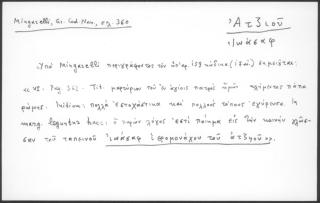 Mingarelli, Gr. Cod. Nan., σελ. 360
Ἀτζιοῦ
Ἰωάσαφ
Ὑπὸ Mingarelli περιγράφοντος τὸν ὑπ' αρ. 159 κώδικα
Pag 362. Tit. μαρτύριον τοῦ ἐν ἁγίοις πατρὸς ἡμῶν κλήμεντος πάπα
ρώμης. Initium: πολλὰ ἐστοχάστικα καὶ πολλοὺς τόπους In
marg. leguntur haec: ὁ παρὼν λόγος ἐστὶ ποίημα εἰς τὴν κοινὴν γλῶσ-
σαν τοῦ ταπεινοῦ ἰωάσαφ ἱερομονάχου τοῦ